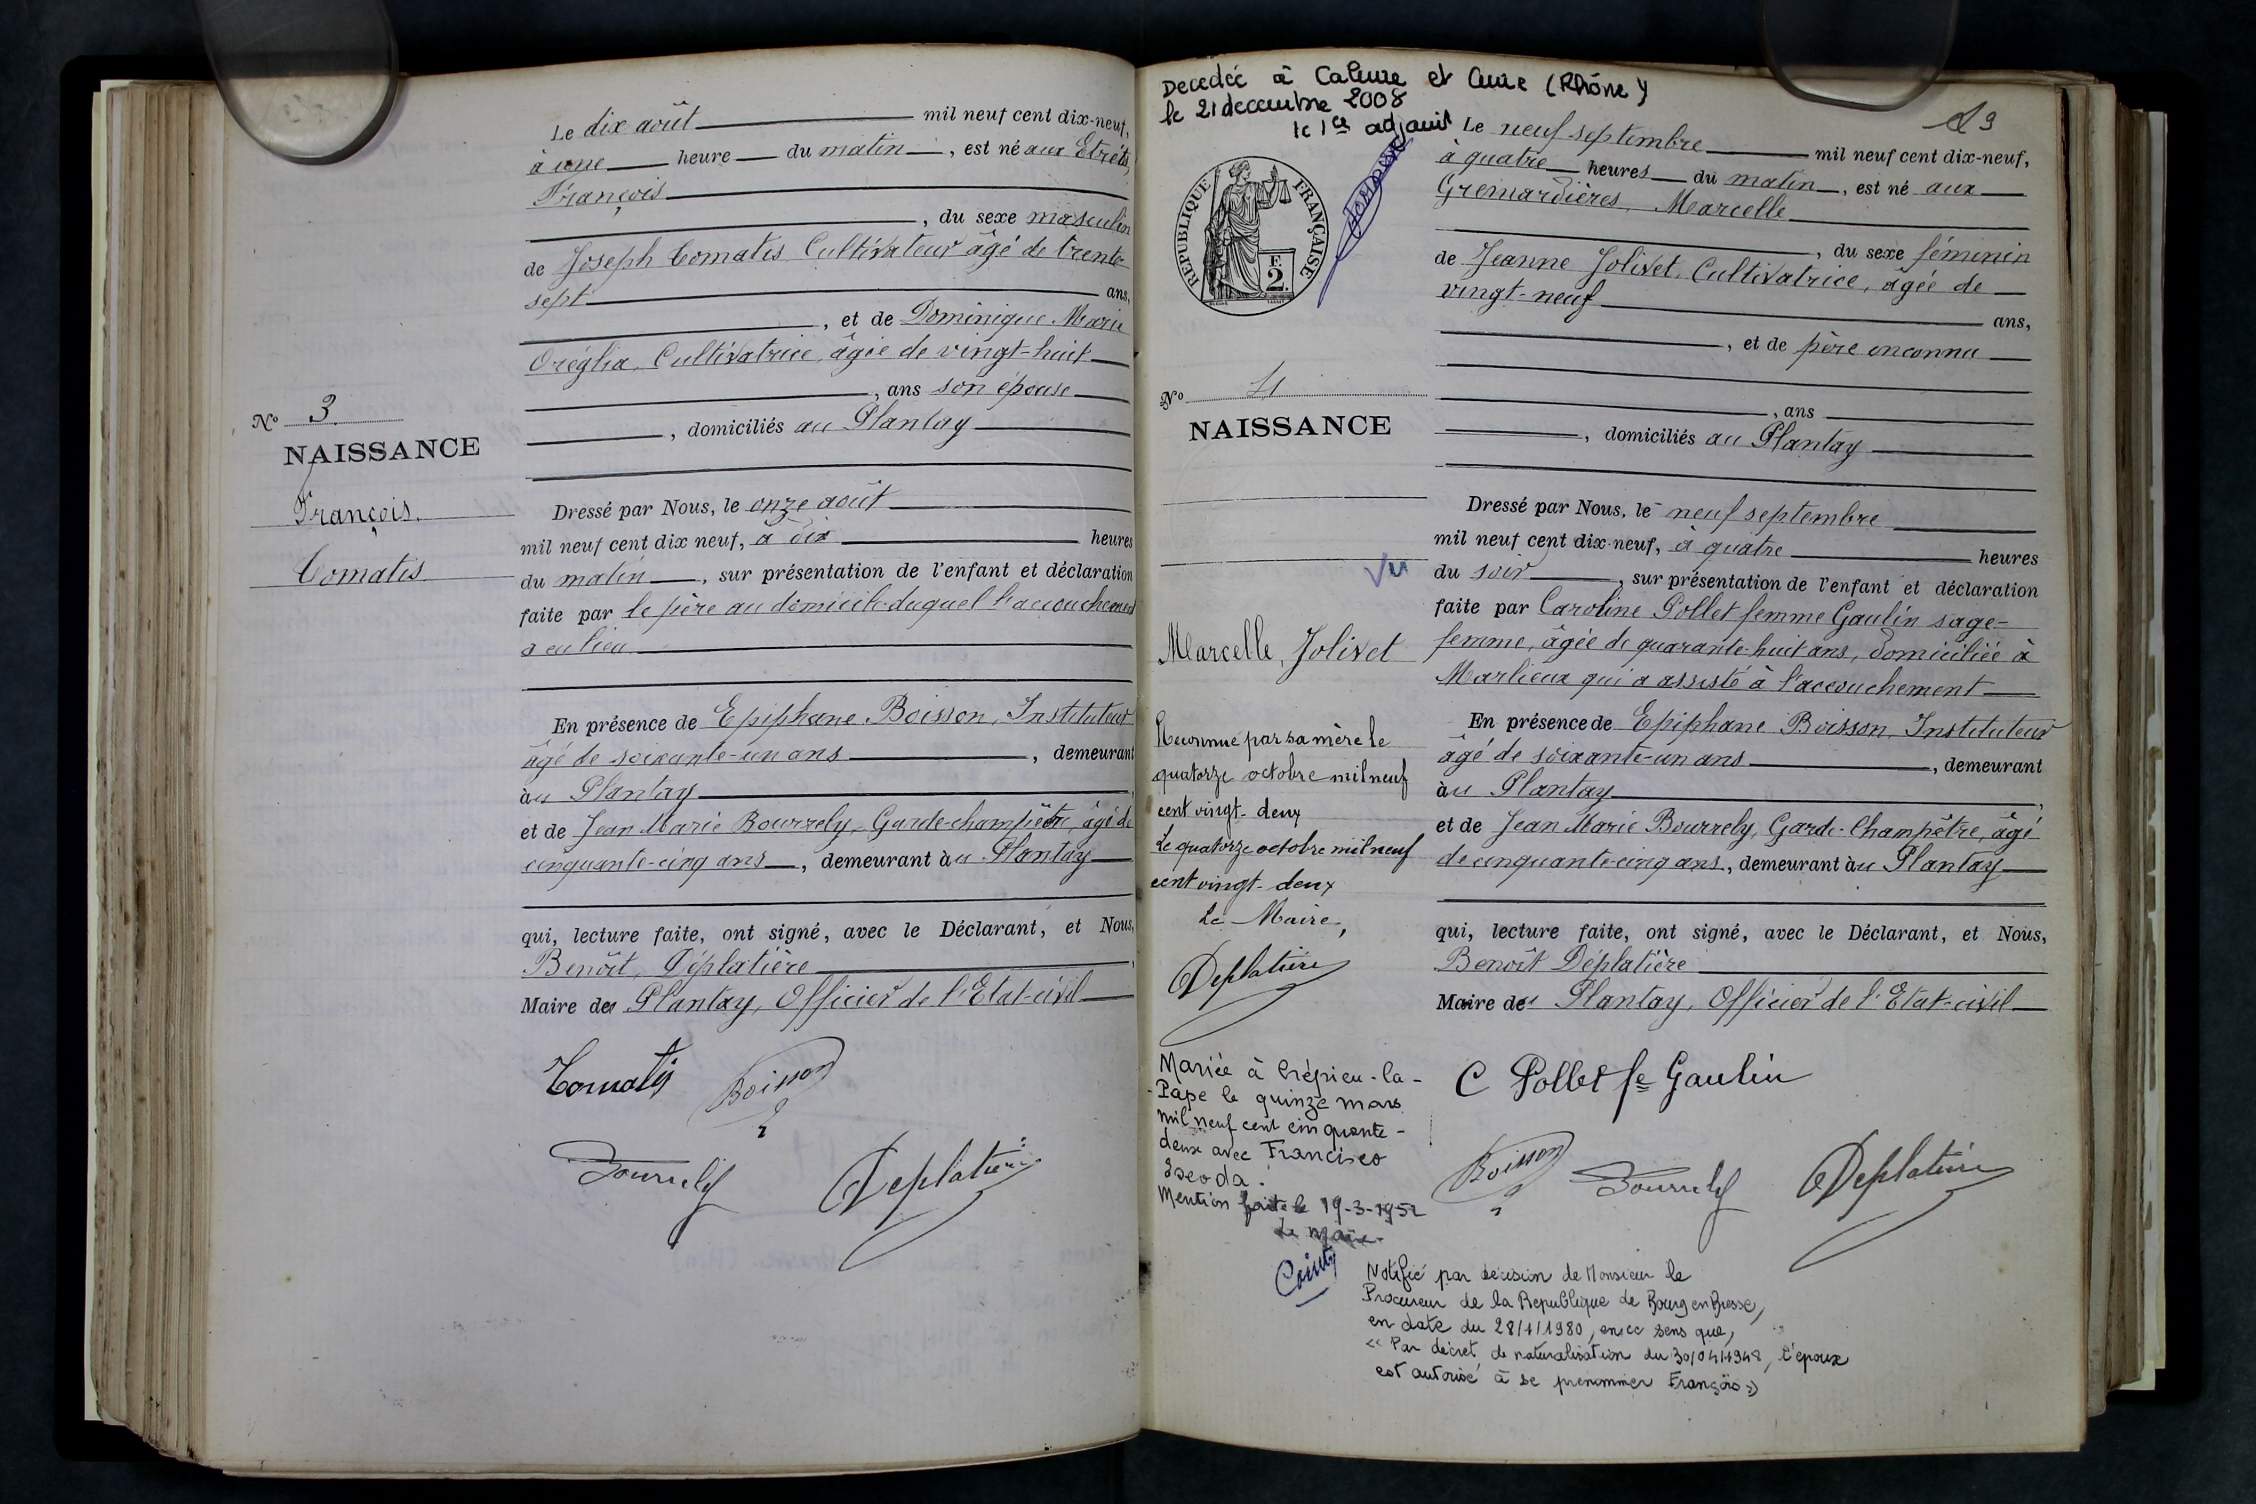 Le dix août mil neuf cent dix-neuf,
à une heure du matin, est né aux Etréts,
François
, du sexe masculin
de Joseph Comatis Cultivateur âgé de trente-
sept ans,
, et de Dominique Marie
Oréglia, Cultivatrice, âgée de vingt-huit
, ans son épouse
, domiciliés au Plantay
Nº 3.
NAISSANCE
François.
Comatis
Dressé par Nous, le onze août
mil neuf cent dix neuf, à dix heures
du matin, sur présentation de l'enfant et déclaration
faite par le père au domicile duquel l'accouchement
a eu lieu
En présence de Epiphane Boisson, Instituteur
âgé de soixante-un ans, demeurant
àu Plantay,
et de Jean Marie Bourrely, Garde-champêtre, âgé de
cinquante-cinq ans, demeurant àu Plantay
qui, lecture faite, ont signé, avec le Déclarant, et Nous,
Benoît Déplatière,
Maire de Plantay, Officier de l'Etat-civil
Comatis Boisson
Bourrely Deplatière
Decedée à Caluire et Cuire (Rhône)
le 21 decembre 2008
le 1er adjoint
REPUBLIQUE FRANÇAISE
F.
2.
19
Le neuf septembre mil neuf cent dix-neuf,
à quatre heures du matin, est né aux
Gremardières, Marcelle
, du sexe féminin
de Jeanne Jolivet, Cultivatrice, âgée de
vingt-neuf ans,
, et de père inconnu
, ans
, domiciliés au Plantay
Nº 4
NAISSANCE
Vu
Marcelle, Jolivet
Dressé par Nous, le neuf septembre
mil neuf cent dix-neuf, à quatre heures
du soir, sur présentation de l'enfant et déclaration
faite par Caroline Pollet femme Gaulin sage-
femme, âgée de quarante-huit ans, domiciliée à
Marlieux qui a assisté à l'accouchement
En présence de Epiphane Boisson, Instituteur
âgé de soixante-un ans, demeurant
àu Plantay,
et de Jean Marie Bourrely, Garde-Champêtre, âgé
de cinquante-cinq ans, demeurant àu Plantay
qui, lecture faite, ont signé, avec le Déclarant, et Nous,
Benoît Déplatière
Maire de Plantay, Officier de l'Etat-civil
C Pollet fe Gaulin
Boisson Bourrely Deplatière
Reconnue par sa mère le
quatorze octobre mil neuf
cent vingt-deux
Le quatorze octobre mil neuf
cent vingt-deux
Le Maire,
Deplatière
Mariée à Crépieu-la-
-Pape le quinze mars
mil neuf cent cinquante-
deux avec Francisco
Isco da.
Mention faite le 19-3-1952
Le Maire.
Notifié par décision de Monsieur le
Procureur de la Republique de Bourg en Bresse,
en date du 28/1/1980, en ce sens que,
« Par décret de naturalisation du 30/04/1948, l'époux
est autorisé à se prénommer François »